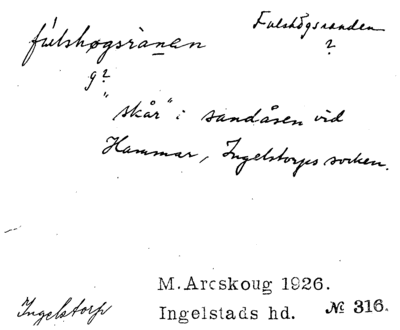 fùlshøgsrànạn Fulshögsranden
g? ?
"skår" i sandåsen vid
Hammar, Ingelstorps socken.
M. Areskoug 1926.
Ingelstorp Ingelstads hd. № 316.